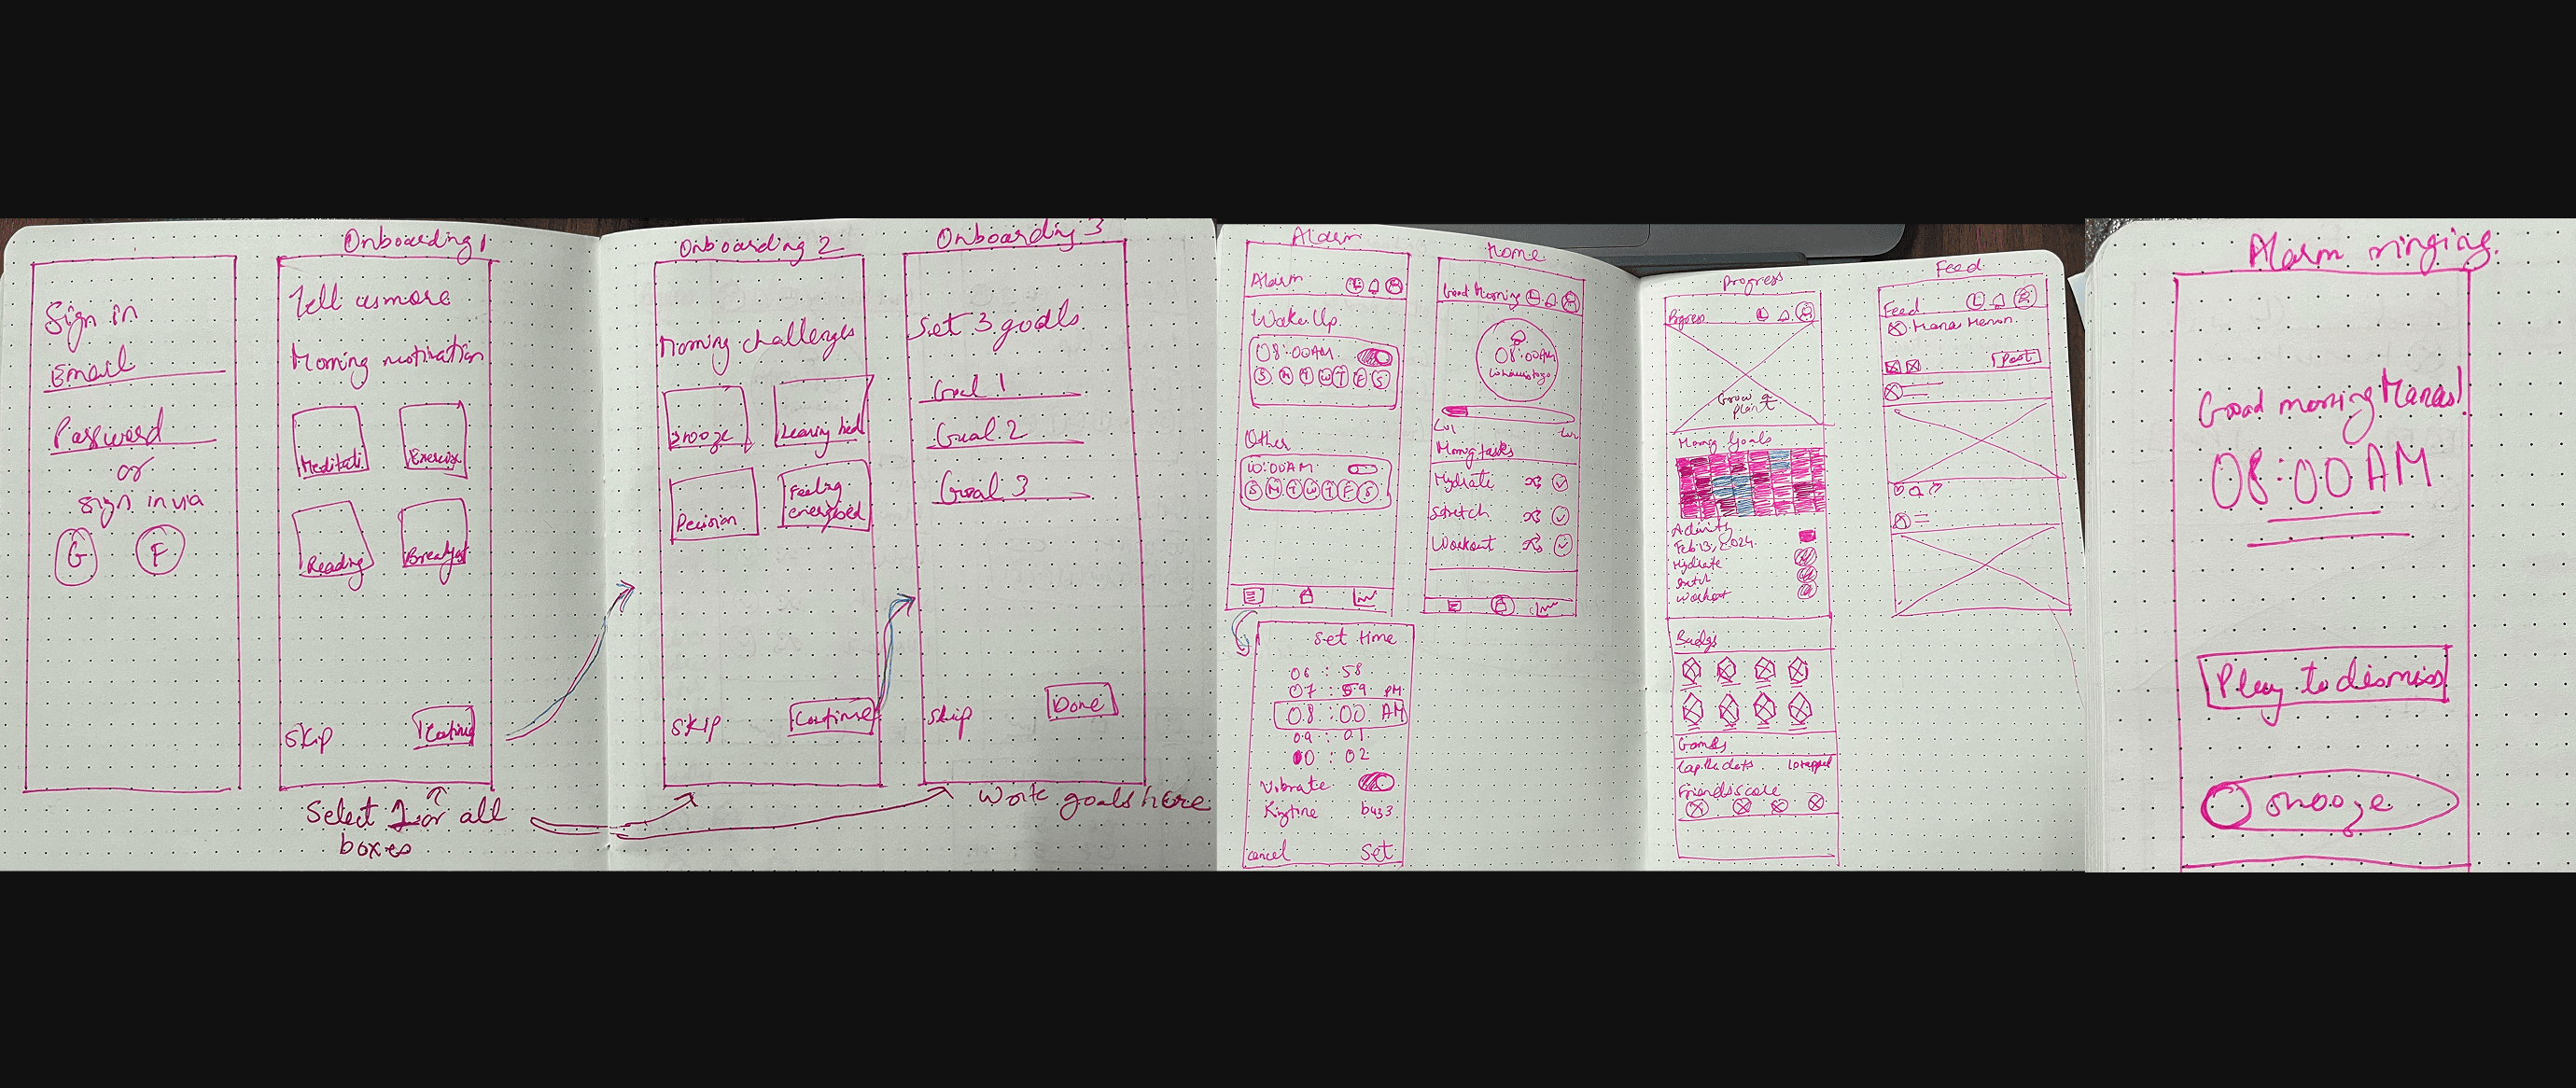 Sign in
Email
Password
or
sign in via
G F
Onboarding 1
Tell us more
Morning motivation
Meditati
Exercise
Reading
Breakfast
Skip
Continue
Select 1 or all
boxes
Onboarding 2
Morning challenges
Snooze
Leaving bed
Decision
Feeling
energised
Skip
Continue
Onboarding 3
Set 3 goals
Goal 1
Goal 2
Goal 3
Skip
Done
goals here
Alarm
Alarm
Wake Up
08:00AM
S M T W T F S
Other
10:00AM
S M T W T F S
Set time
06 : 58
07 : 59 PM
08 : 00 AM
09 : 01
10 : 02
Vibrate
Ringtone
cancel Set
Home
Good Morning
08:00AM
Morning tasks
Hydrate
Stretch
Workout
Progress
Progress
Grow a
plant
Goals
Activity
Feb 13, 2024
Hydrate
Workout
Badgs
Games
Tap the dots
Friends score
Feed
Feed
Post
Alarm ringing
Good morning Manas!
08:00 AM
Play to dismiss
Snooze